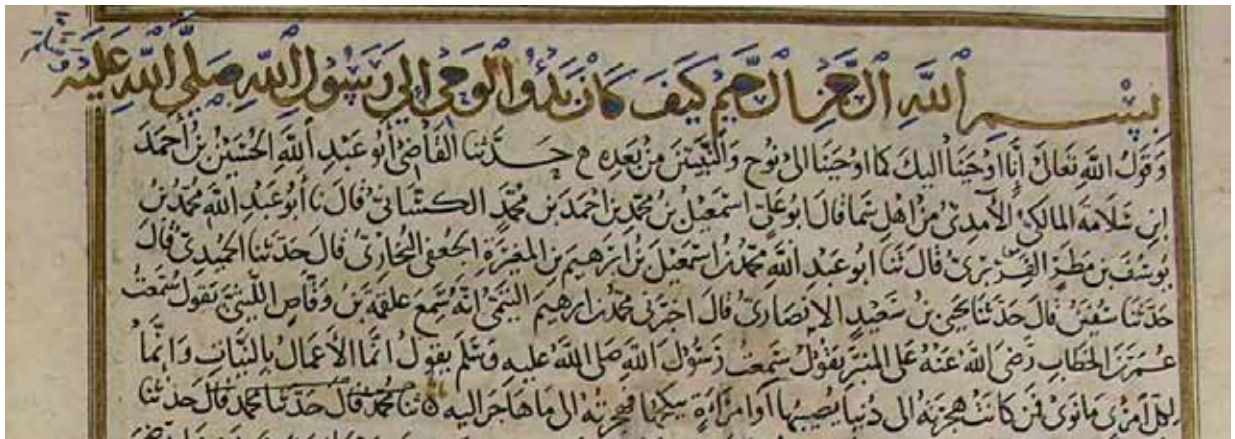 بسم الله الرحمن الرحيم كيف كان بدؤ الوحي الي رسول الله صلى الله عليه
وقول الله تعالى انا اوحينا اليك كما اوحينا الى نوح والنبيين من بعده ح حدثنا القاضي ابو عبد الله الحسين بن احمد
ابن سلامة المالكي الآمدي من اهل قال ابو علي اسمعيل بن محمد بن احمد بن محمد الكشاني قال ابو عبد الله محمد بن
يوسف بن مطر الفربري قال ثنا ابو عبد الله محمد بن اسمعيل بن ابرهيم بن المغيرة الجعفي البخاري قال حدثنا الحميدي قال
حدثنا سفين قال حدثنا يحيى بن سعيد الانصاري قال اخبرني محمد بن ابرهيم التيمي انه سمع علقمة بن وقاص الليثي يقول سمعت
عمر بن الخطاب رضي الله عنه على المنبر يقول سمعت رسول الله صلى الله عليه وسلم يقول انما الاعمال بالنيات وانما
لكل امرئ ما نوى فمن كانت هجرته الى دنيا يصيبها او امراة ينكحها فهجرته الى ما هاجر اليه ثنا محمد قال حدثنا محمد قال حدثنا